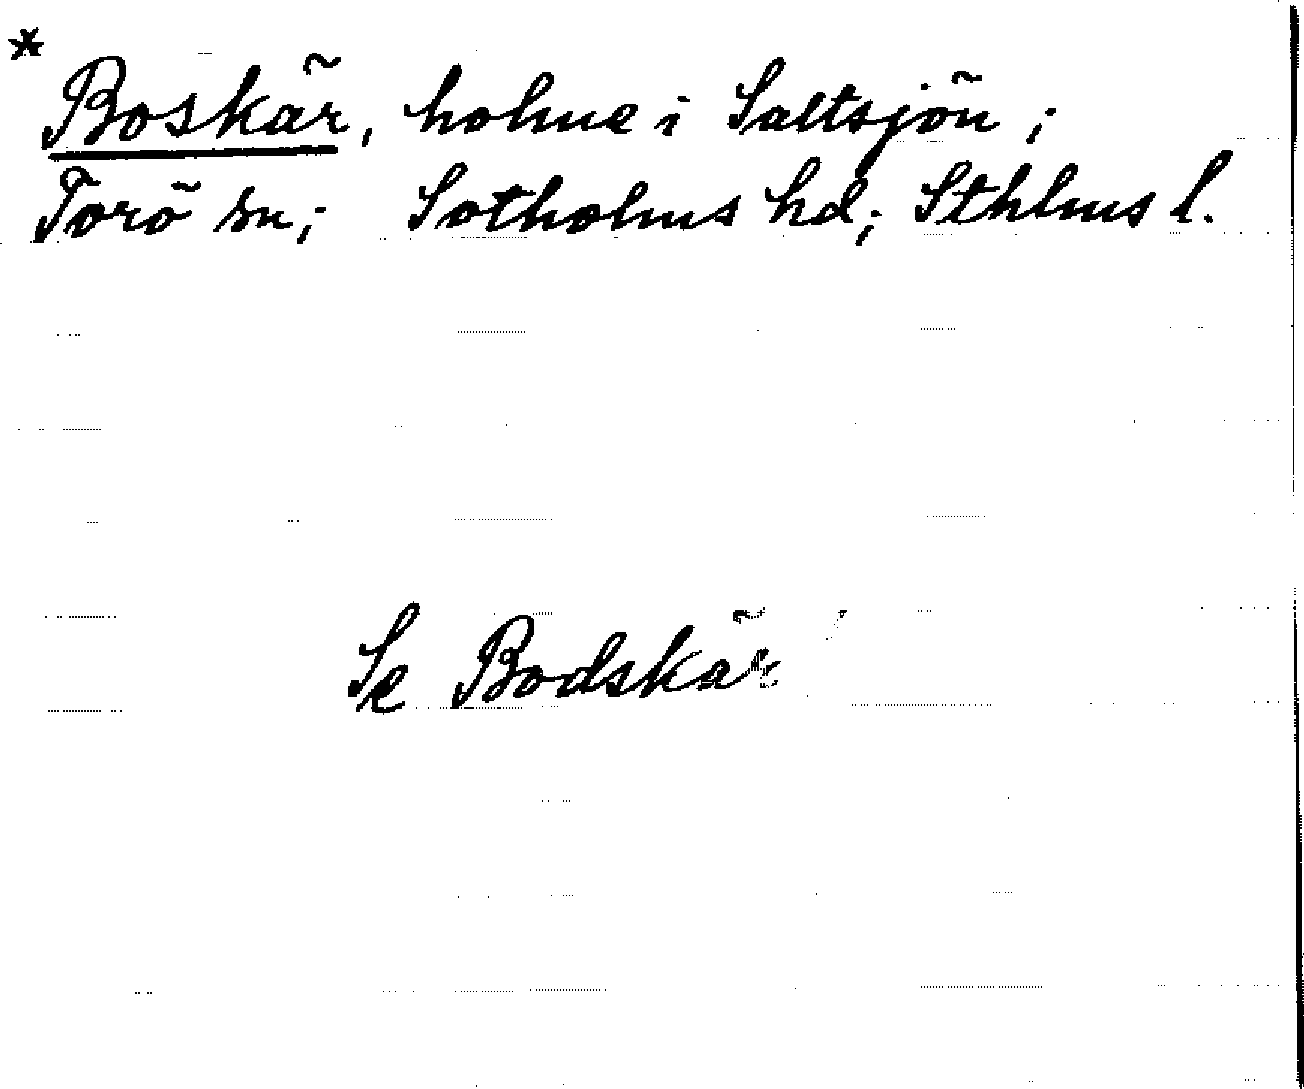 * Boskär, holme i Saltsjön ;
Torö sn; Sotholms hd; Sthlms l.
Se Bodskär